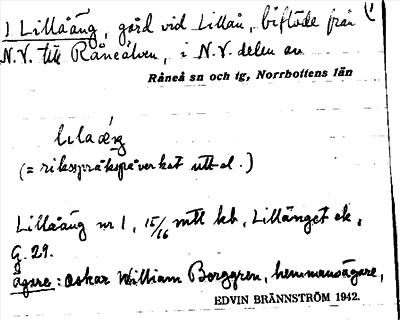 1 Lillåäng, gård vid Lillån, biflöde från
N.V. till Råneälven, i N.V. delen av
Råneå sn och tg, Norrbottens län
lılaǽŋ
(= riksspråkspåverkat uttal.)
Lillåäng nr 1, 15/16 mtl kb, Lillänget ek.
G. 29.
Ägare: Oskar William Borggren, hemmansägare,
EDVIN BRÄNNSTRÖM 1942.